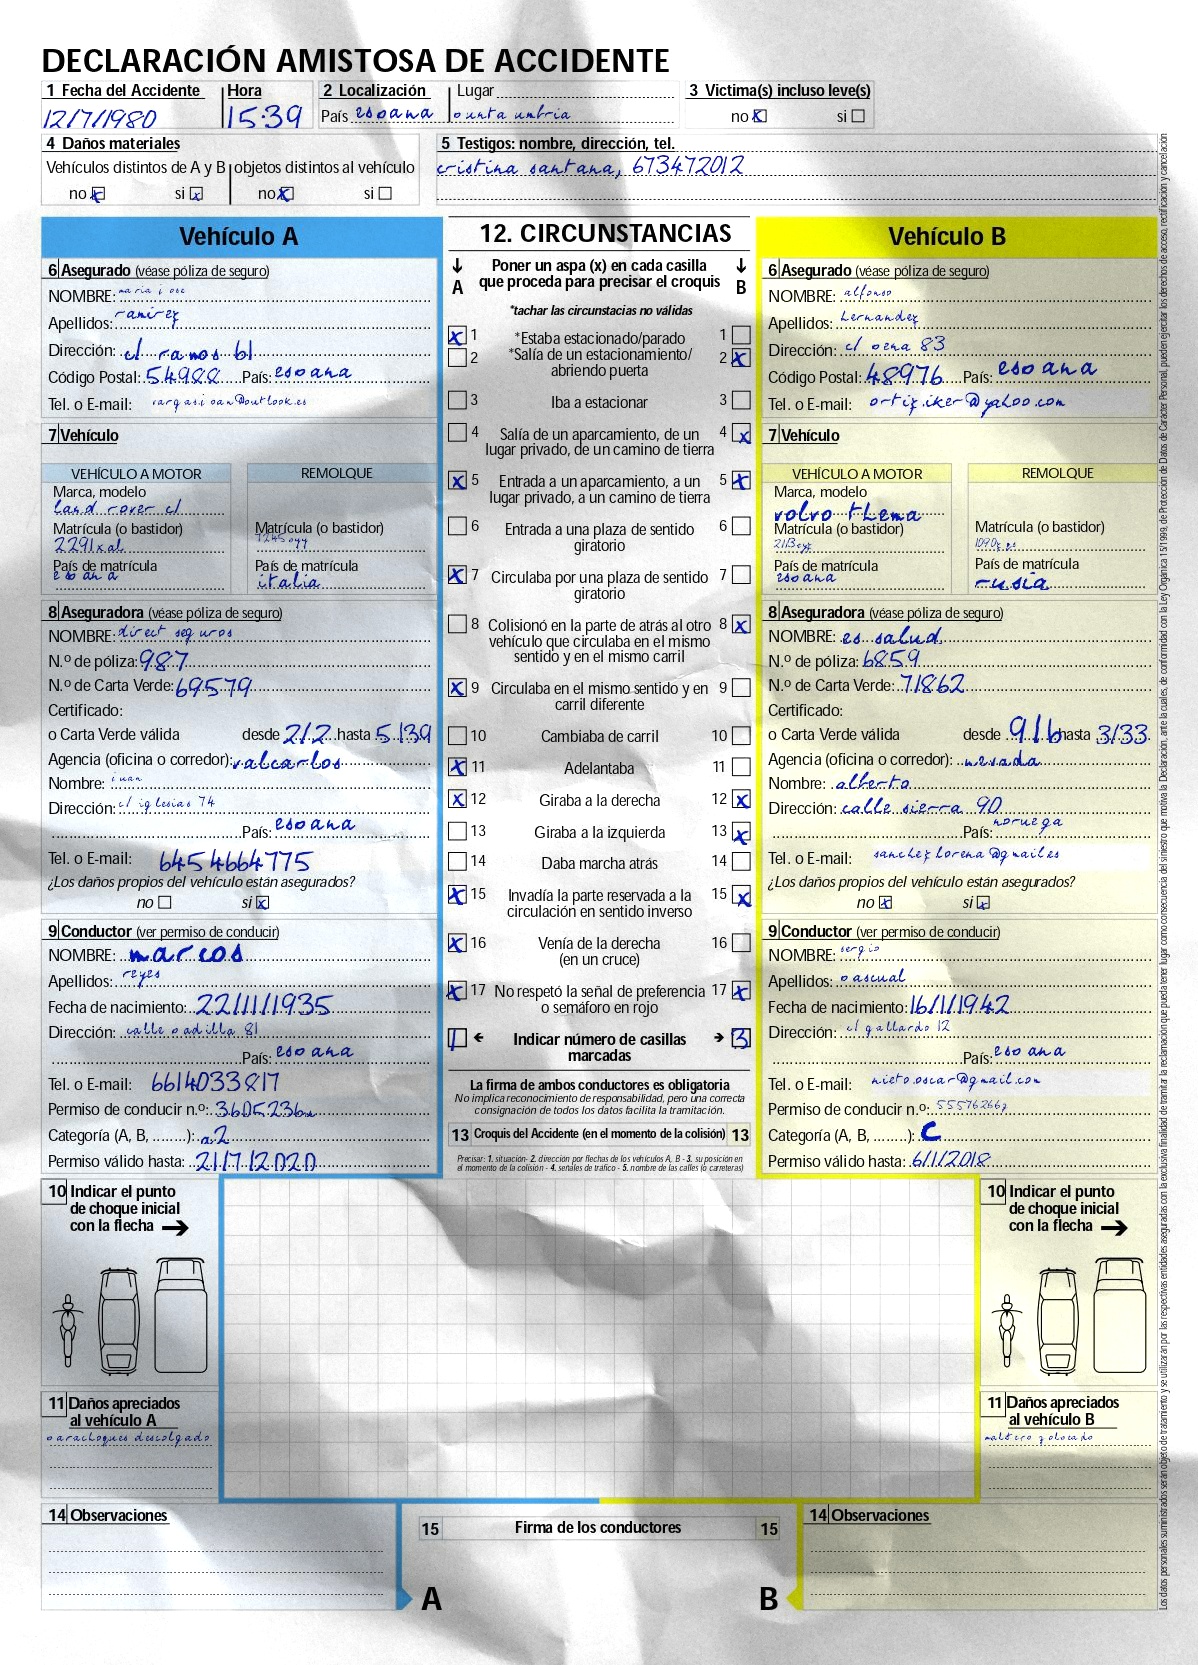 DECLARACIÓN AMISTOSA DE ACCIDENTE
1 Fecha del Accidente Hora 2 Localización Lugar 3 Victima(s) incluso leve(s)
12/7/1980 15:39 País esoana ounta umbria no si
4 Daños materiales 5 Testigos: nombre, dirección, tel.
Vehículos distintos de A y B objetos distintos al vehículo cristina santana, 673472012
no si no si
Vehículo A
6 Asegurado (véase póliza de seguro)
NOMBRE: maria jose
Apellidos: ramirez
Dirección: c/ ramos 61
Código Postal: 54988 País: esoana
Tel. o E-mail: vargasjoan@outlook.es
7 Vehículo
VEHÍCULO A MOTOR REMOLQUE
Marca, modelo
land rover cl
Matrícula (o bastidor) Matrícula (o bastidor)
2291xal 7245oyy
País de matrícula País de matrícula
esoana italia
8 Aseguradora (véase póliza de seguro)
NOMBRE: direct seguros
N.º de póliza: 987
N.º de Carta Verde: 69579
Certificado:
o Carta Verde válida desde 2/2 hasta 5/39
Agencia (oficina o corredor): valcarlos
Nombre: juan
Dirección: c/ iglesias 74
País: esoana
Tel. o E-mail: 6454664775
¿Los daños propios del vehículo están asegurados?
no si
9 Conductor (ver permiso de conducir)
NOMBRE: marcos
Apellidos: reyes
Fecha de nacimiento: 22/11/1935
Dirección: calle oadilla 81
País: esoana
Tel. o E-mail: 6614033817
Permiso de conducir n.º:
Categoría (A, B, ........): a2
Permiso válido hasta: 21/7/2020
12. CIRCUNSTANCIAS
A Poner un aspa (x) en cada casilla que proceda para precisar el croquis B
*tachar las circunstacias no válidas
1 *Estaba estacionado/parado 1
2 *Salía de un estacionamiento/ 2
abriendo puerta
3 Iba a estacionar 3
4 Salía de un aparcamiento, de un 4
lugar privado, de un camino de tierra
5 Entrada a un aparcamiento, a un 5
lugar privado, a un camino de tierra
6 Entrada a una plaza de sentido 6
giratorio
7 Circulaba por una plaza de sentido 7
giratorio
8 Colisionó en la parte de atrás al otro 8
vehículo que circulaba en el mismo
sentido y en el mismo carril
9 Circulaba en el mismo sentido y en 9
carril diferente
10 Cambiaba de carril 10
11 Adelantaba 11
12 Giraba a la derecha 12
13 Giraba a la izquierda 13
14 Daba marcha atrás 14
15 Invadía la parte reservada a la 15
circulación en sentido inverso
16 Venía de la derecha 16
(en un cruce)
17 No respetó la señal de preferencia 17
o semáforo en rojo
1 Indicar número de casillas 3
marcadas
La firma de ambos conductores es obligatoria
No implica reconocimiento de responsabilidad, pero una correcta
consignación de todos los datos facilita la tramitación.
13 Croquis del Accidente (en el momento de la colisión) 13
Precisar: 1. situación- 2. dirección por flechas de los vehículos A, B - 3. su posición en
el momento de la colisión - 4. señales de tráfico - 5. nombre de las calles (o carreteras)
Vehículo B
6 Asegurado (véase póliza de seguro)
NOMBRE: alfonso
Apellidos: hernandez
Dirección: c/ oena 83
Código Postal: 48976 País: esoana
Tel. o E-mail: ortiz.iker@yahoo.com
7 Vehículo
VEHÍCULO A MOTOR REMOLQUE
Marca, modelo
volvo thema
Matrícula (o bastidor) Matrícula (o bastidor)
País de matrícula País de matrícula
esoana rusia
8 Aseguradora (véase póliza de seguro)
NOMBRE: es salud
N.º de póliza: 6859
N.º de Carta Verde: 71862
Certificado:
o Carta Verde válida desde 9/6 hasta 3/33
Agencia (oficina o corredor): nevada
Nombre: alberto
Dirección: calle sierra 90
País: noruega
Tel. o E-mail: sanchezlorena@gmail.es
¿Los daños propios del vehículo están asegurados?
no si
9 Conductor (ver permiso de conducir)
NOMBRE: sergio
Apellidos: oascual
Fecha de nacimiento: 16/1/1942
Dirección: c/ gallardo 12
País: esoana
Tel. o E-mail: nieto.oscar@gmail.com
Permiso de conducir n.º:
Categoría (A, B, ........): c
Permiso válido hasta: 6/1/2018
10 Indicar el punto
de choque inicial
con la flecha
11 Daños apreciados
al vehículo A
oarachoques descolgado
10 Indicar el punto
de choque inicial
con la flecha
11 Daños apreciados
al vehículo B
14 Observaciones
15 Firma de los conductores 15
A B
14 Observaciones
Los datos personales suministrados serán objeto de tratamiento y se utilizaran por las respectivas entidades aseguradas con la exclusiva finalidad de tramitar la reclamación que pueda tener lugar como consecuencia del siniestro que motiva la Declaración, ante la cuales, de conformidad con la Ley Orgánica 15/1999, de Protección de Datos de Carácter Personal, pueden ejercitar los derechos de acceso, rectificación y cancelación